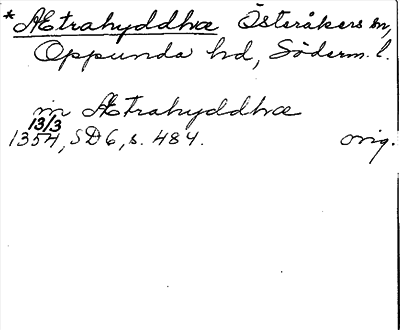 *Ætrahyddhæ Österåkers sn,
Oppunda hd, Söderm. l.
in Ætrahyddhæ
13/3
1354, SD 6, s. 484. orig.